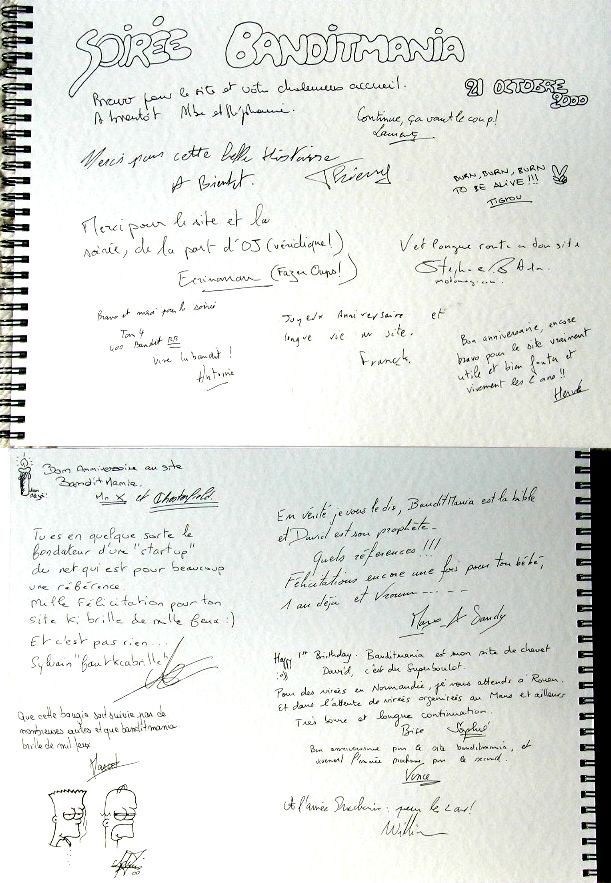 SOIRÉE BANDITMANIA
21 OCTOBRE
2000
Bravo pour le site et votre chaleureux accueil.
A bientôt
Continue, ça vaut le coup!
Merci pour cette belle histoire
A Bientot.
Thierry
BURN, BURN, BURN
TO BE ALIVE!!!
TIGROU
Merci pour le site et la
soirée, de la part d'OJ (véridique!)
(Fazer Oups!)
V et longue route a ton site
Bravo et merci pour la soirée
Tom 4
400 Bandit
Vive la bandit!
Antoine
Joyeux Anniversaire et
longue vie au site.
Franck.
Bon anniversaire, encore
bravo pour le site vraiment
utile et bien foutu et
vivement les 2 ans!!
Hervé
Bon Anniversaire au site
BanditMania.
Mr X et Chesterfield.
Tu es en quelque sorte le
fondateur d'une "startup"
du net qui est pour beaucoup
une référence.
Mille Félicitation pour ton
site ki brille de mille feux :)
Et c'est pas rien...
Sylvain "fautkcabrille"
Que cette bougie soit suivie par de
nombreuses autres et que banditmania
brille de mil feux
En vérité je vous le dis, BanditMania est la bible
et David est son prophète.
Quels références!!!
Félicitations encore une fois pour ton bébé,
1 an déjà et Vroum-----
Sandy
Happy 1st Birthday. Banditmania est mon site de chevet
David, c'est du Superboulot.
Pour des virées en Normandie, je vous attends à Rouen.
Et dans l'attente de virées organisées au Mans et ailleurs
Très bonne et longue continuation.
Bise Sophie
Bon anniversaire pour le site banditmania, et
vivement l'année prochaine pour le second.
Vince
A l'année Prochaine: pour le 2 ans!
William